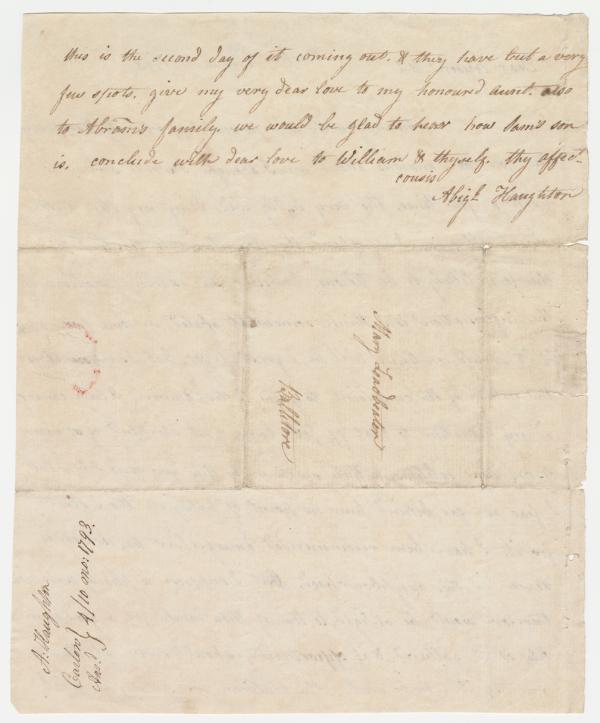 this is the second day of it coming out. & they have but a very
few spots. give my very dear love to my honoured aunt. also
to Abram's family. we would be glad to hear how Sam's son
is. conclude with dear love to William & thyself. thy affect.
cousin
Abigl. Haughton
Mary Leadbeater
Ballitore
A: Haughton
Carlow 4/10 mo: 1793.
Ansd.